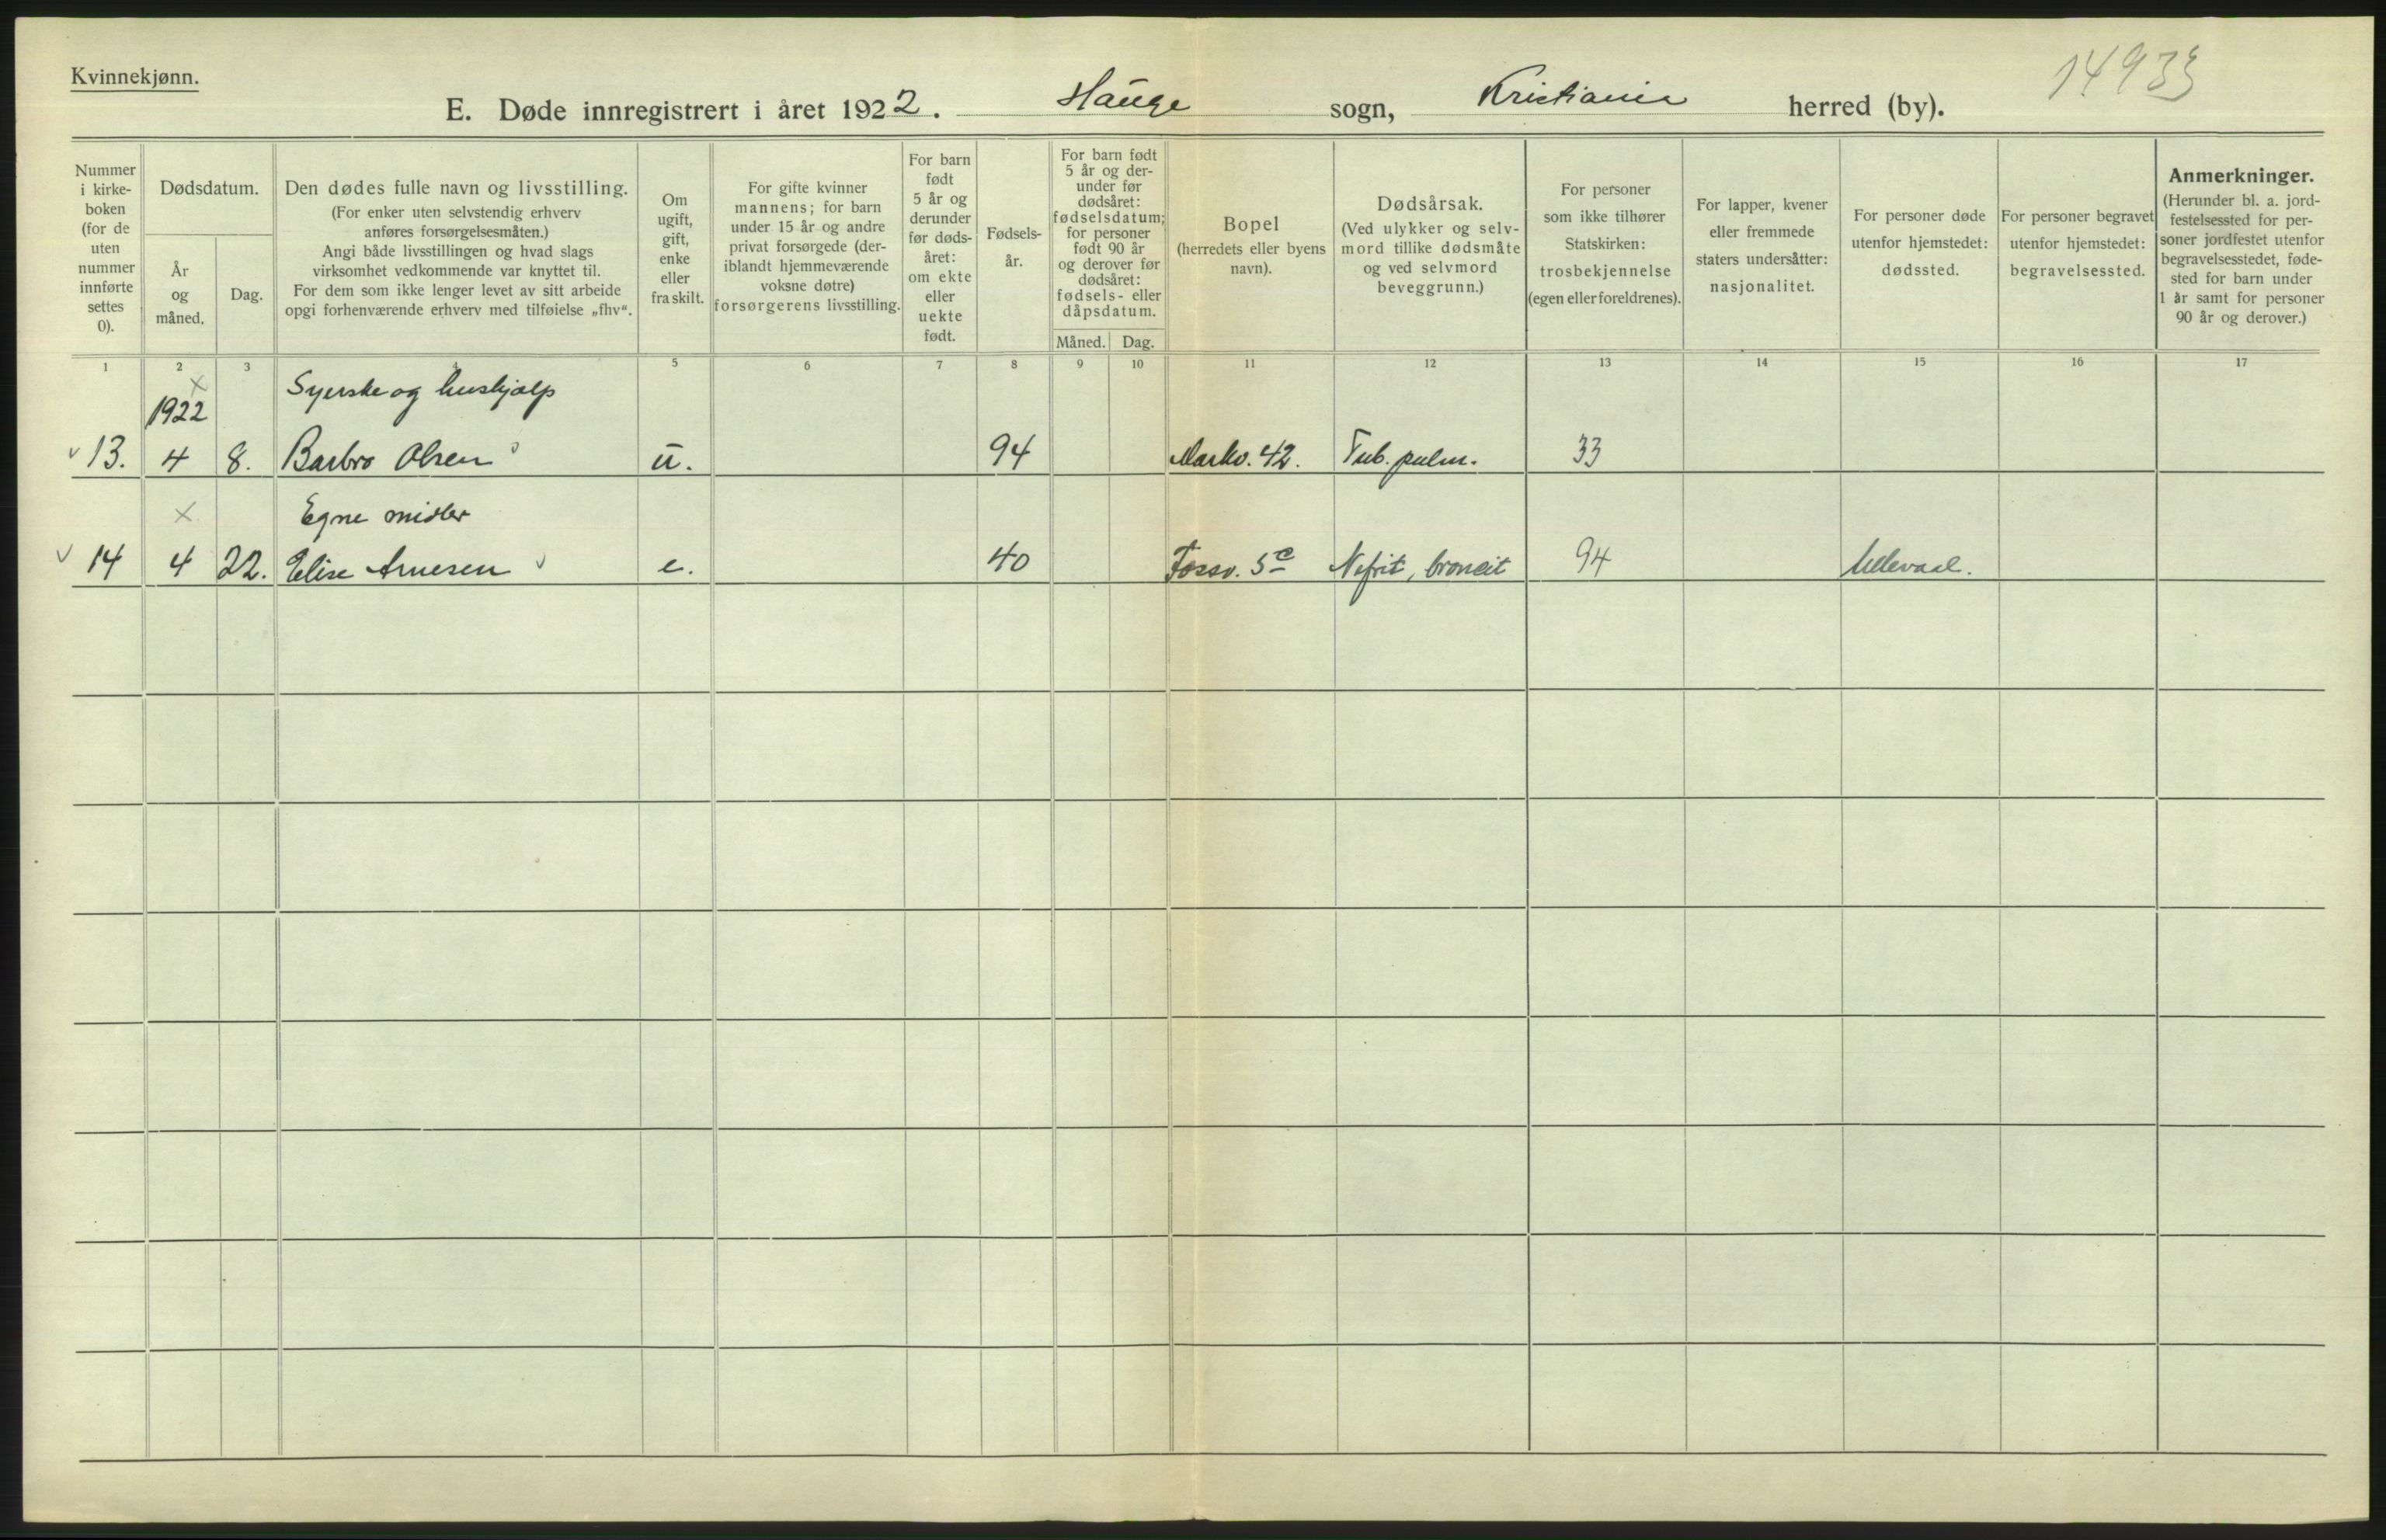 Kvinnekjønn.
14933
E. Døde innregistrert i året 1922. Hauge sogn, Kristiania herred (by).
Nummer
i kirke-
boken
(for de
uten
nummer
innførte
settes
0).
Dødsdatum.
År
og
måned.
Dag.
Den dødes fulle navn og livsstilling.
(For enker uten selvstendig erhverv
anføres forsørgelsesmåten.)
Angi både livsstillingen og hvad slags
virksomhet vedkommende var knyttet til.
For dem som ikke lenger levet av sitt arbeide
opgi forhenværende erhverv med tilføielse „fhv“.
Om
ugift,
gift,
enke
eller
fraskilt.
For gifte kvinner
mannens; for barn
under 15 år og andre
privat forsørgede (der-
iblandt hjemmeværende
voksne døtre)
forsørgerens livsstilling.
For barn
født
5 år og
derunder
før døds-
året:
om ekte
eller
uekte
født.
Fødsels-
år.
For barn født
5 år og der-
under før
dødsåret:
fødselsdatum;
for personer
født 90 år
og derover før
dødsåret:
fødsels- eller
dåpsdatum.
Måned. Dag.
Bopel
(herredets eller byens
navn).
Dødsårsak.
(Ved ulykker og selv-
mord tillike dødsmåte
og ved selvmord
beveggrunn.)
For personer
som ikke tilhører
Statskirken:
trosbekjennelse
(egen eller foreldrenes).
For lapper, kvener
eller fremmede
staters undersåtter:
nasjonalitet.
For personer døde
utenfor hjemstedet:
dødssted.
For personer begravet
utenfor hjemstedet:
begravelsessted.
Anmerkninger.
(Herunder bl. a. jord-
festelsessted for per-
soner jordfestet utenfor
begravelsesstedet, føde-
sted for barn under
1 år samt for personer
90 år og derover.)
1 2 3 4 5 6 7 8 9 10 11 12 13 14 15 16 17
x
1922 Syerske og hushjælp
v 13. 4 8. Barbro Olsen u. 94 Markv. 42. Tub. pulm. 33
x Egne midler
v 14 4 22. Elise Arnesen v e. 40 Fossv. 5c Nefrit, broncit 94 Ullevaal.